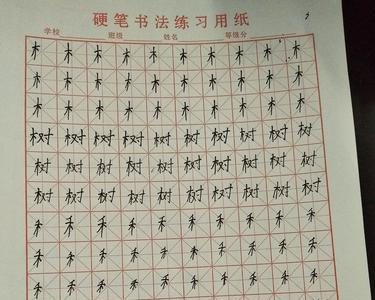 硬笔书法练习用纸
学校 班级 姓名 等级分
木 木 木 木 木 木 木 木 木 木
木 木 木 木 木 木 木 木 木 木
木 木 木 木 木 木 木 木 木 木
树 树 树 树 树 树 树 树 树 树
树 树 树 树 树 树 树 树 树 树
树 树 树 树 树 树 树 树 树 树
禾 禾 禾 禾 禾 禾 禾 禾 禾 禾
禾 禾 禾 禾 禾 禾 禾 禾 禾 禾
禾 禾 禾 禾 禾 禾 禾 禾 禾 禾